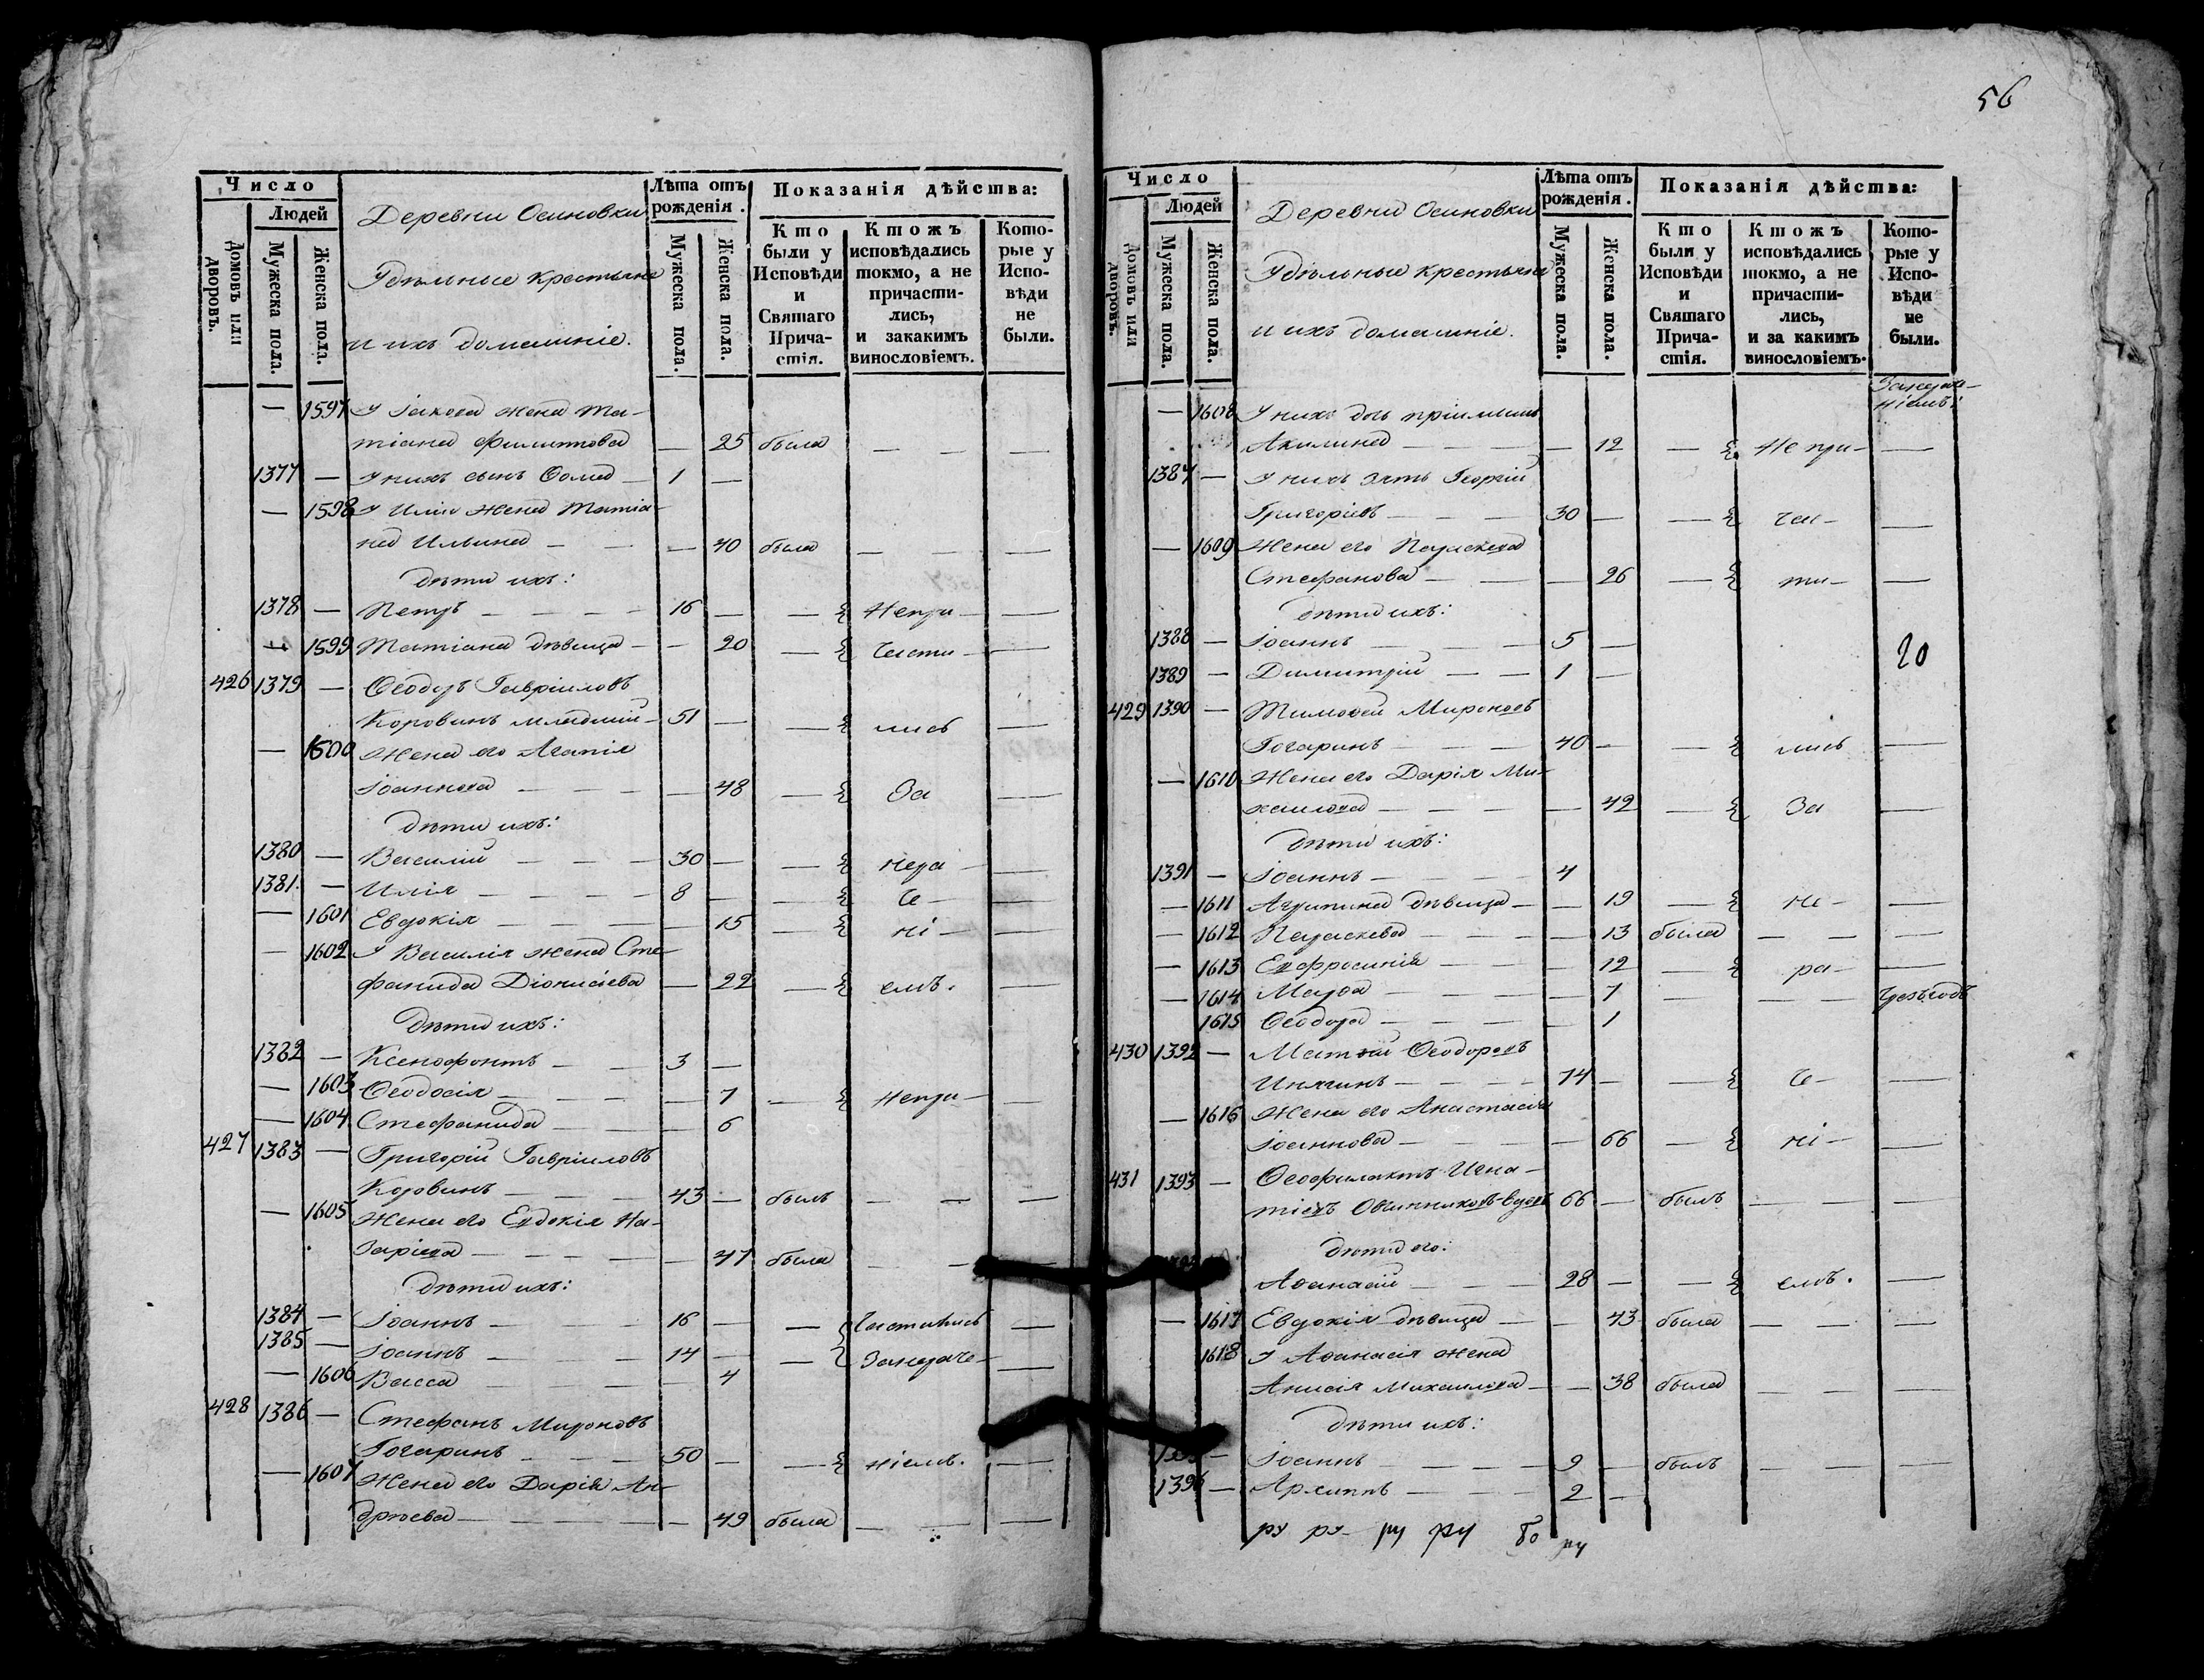 56
Число
Людей
Домовъ или дворовъ.
Мужеска пола.
Женска пола.
Деревни Осиновки
Удѣльные крестьяне
и ихъ домашніе.
Лѣта отъ рожденія.
Мужеска пола.
Женска пола.
Показанія дѣйства:
Кто были у Исповѣди и Святаго Причастія.
Ктожъ исповѣдались токмо, а не причастились, и закакимъ винословіемъ.
Которые у Исповѣди не были.
— 1597 У Іакова жена Та-
тіана Филиппова — 25 была — — —
1377 — У нихъ сынъ Ѳома 1 —
— 1598 У Иліи жена Татіа-
на Ильина — — 40 была — — —
дѣти ихъ:
1378 — Петръ — 16 — — Непри- —
— 1599 Татіана дѣвица — — 20 — части- —
426 1379 — Ѳеодоръ Гавріиловъ
Коровинъ младшій — 51 — — лись —
— 1600 Жена его Агапія
Іоаннова — — 48 — За —
дѣти ихъ:
1380 — Василій — 30 — — нера- —
1381. — Илія — 8 — — че- —
— 1601 Евдокія — — 15 — ні- —
— 1602 У Василія жена Сте-
фанида Діонисіева — 22 — емъ. —
дѣти ихъ:
1382 — Ксенофонтъ — 3 —
— 1603 Ѳеодосія — — 7 — Непри- —
— 1604 Стефанида — — 6
427 1383 — Григорій Гавріиловъ
Коровинъ — 43 — былъ — — —
— 1605 Жена его Евдокія На-
заріева — — 47 была — —
дѣти ихъ:
1384 — Іоаннъ — 16 — — частились —
1385 — Іоаннъ — 14 — — Занераче- —
— 1606 Васса — — 4
428 1386 — Стефанъ Мироновъ
Гогаринъ — 50 — — ніемъ. —
— 1607 Жена его Дарія Ан-
дрѣева — — 49 была — — —
Число
Людей
Домовъ или дворовъ.
Мужеска пола.
Женска пола.
Деревни Осиновки
Удѣльные крестьяне
и ихъ домашніе.
Лѣта отъ рожденія.
Мужеска пола.
Женска пола.
Показанія дѣйства:
Кто были у Исповѣди и Святаго Причастія.
Ктожъ исповѣдались токмо, а не причастились, и за какимъ винословіемъ.
Которые у Исповѣди не были.
— 1608 У нихъ дочь пріимышъ
Акилина — — 12 — Не при- —
1387 — У нихъ зять Георгій
Григоріевъ — 30 — — час- —
— 1609 Жена его Параскева
Стефанова — — 26 — ти- —
дѣти ихъ:
1388 — Іоаннъ — 5 —
20
1389 — Димитрій — 1 —
429 1390 — Тимоѳей Мироновъ
Гогаринъ — 40 — — лись —
— 1610 Жена его Дарія Ми-
хаилова — — 42 — За —
дѣти ихъ:
1391 — Іоаннъ — 4
— 1611 Агрипина дѣвица — — 19 — не- —
— 1612 Параскева — — 13 была — — —
— 1613 Евфросинія — — 12 — ра- —
— 1614 Марѳа — — 7 — — —
1615 Ѳеодора — — 1
430 1392 — Матѳей Ѳеодоровъ
— 74 — — че- —
— 1616 Жена его Анастасія
Іоаннова — — 66 — ні- —
431 1393 — Ѳеофилактъ Игна-
тіевъ Овчинниковъ-вдовъ 66 — былъ — — —
дѣти его:
Аѳанасій — 28 — — емъ. —
— 1617 Евдокія дѣвица — — 43 была — — —
1618 У Аѳанасія жена
Анисія Михаилова — — 38 была — — —
дѣти ихъ:
— Іоаннъ — 9 — былъ — — —
1396 — Архиппъ — 2 —
ру ру ру ру